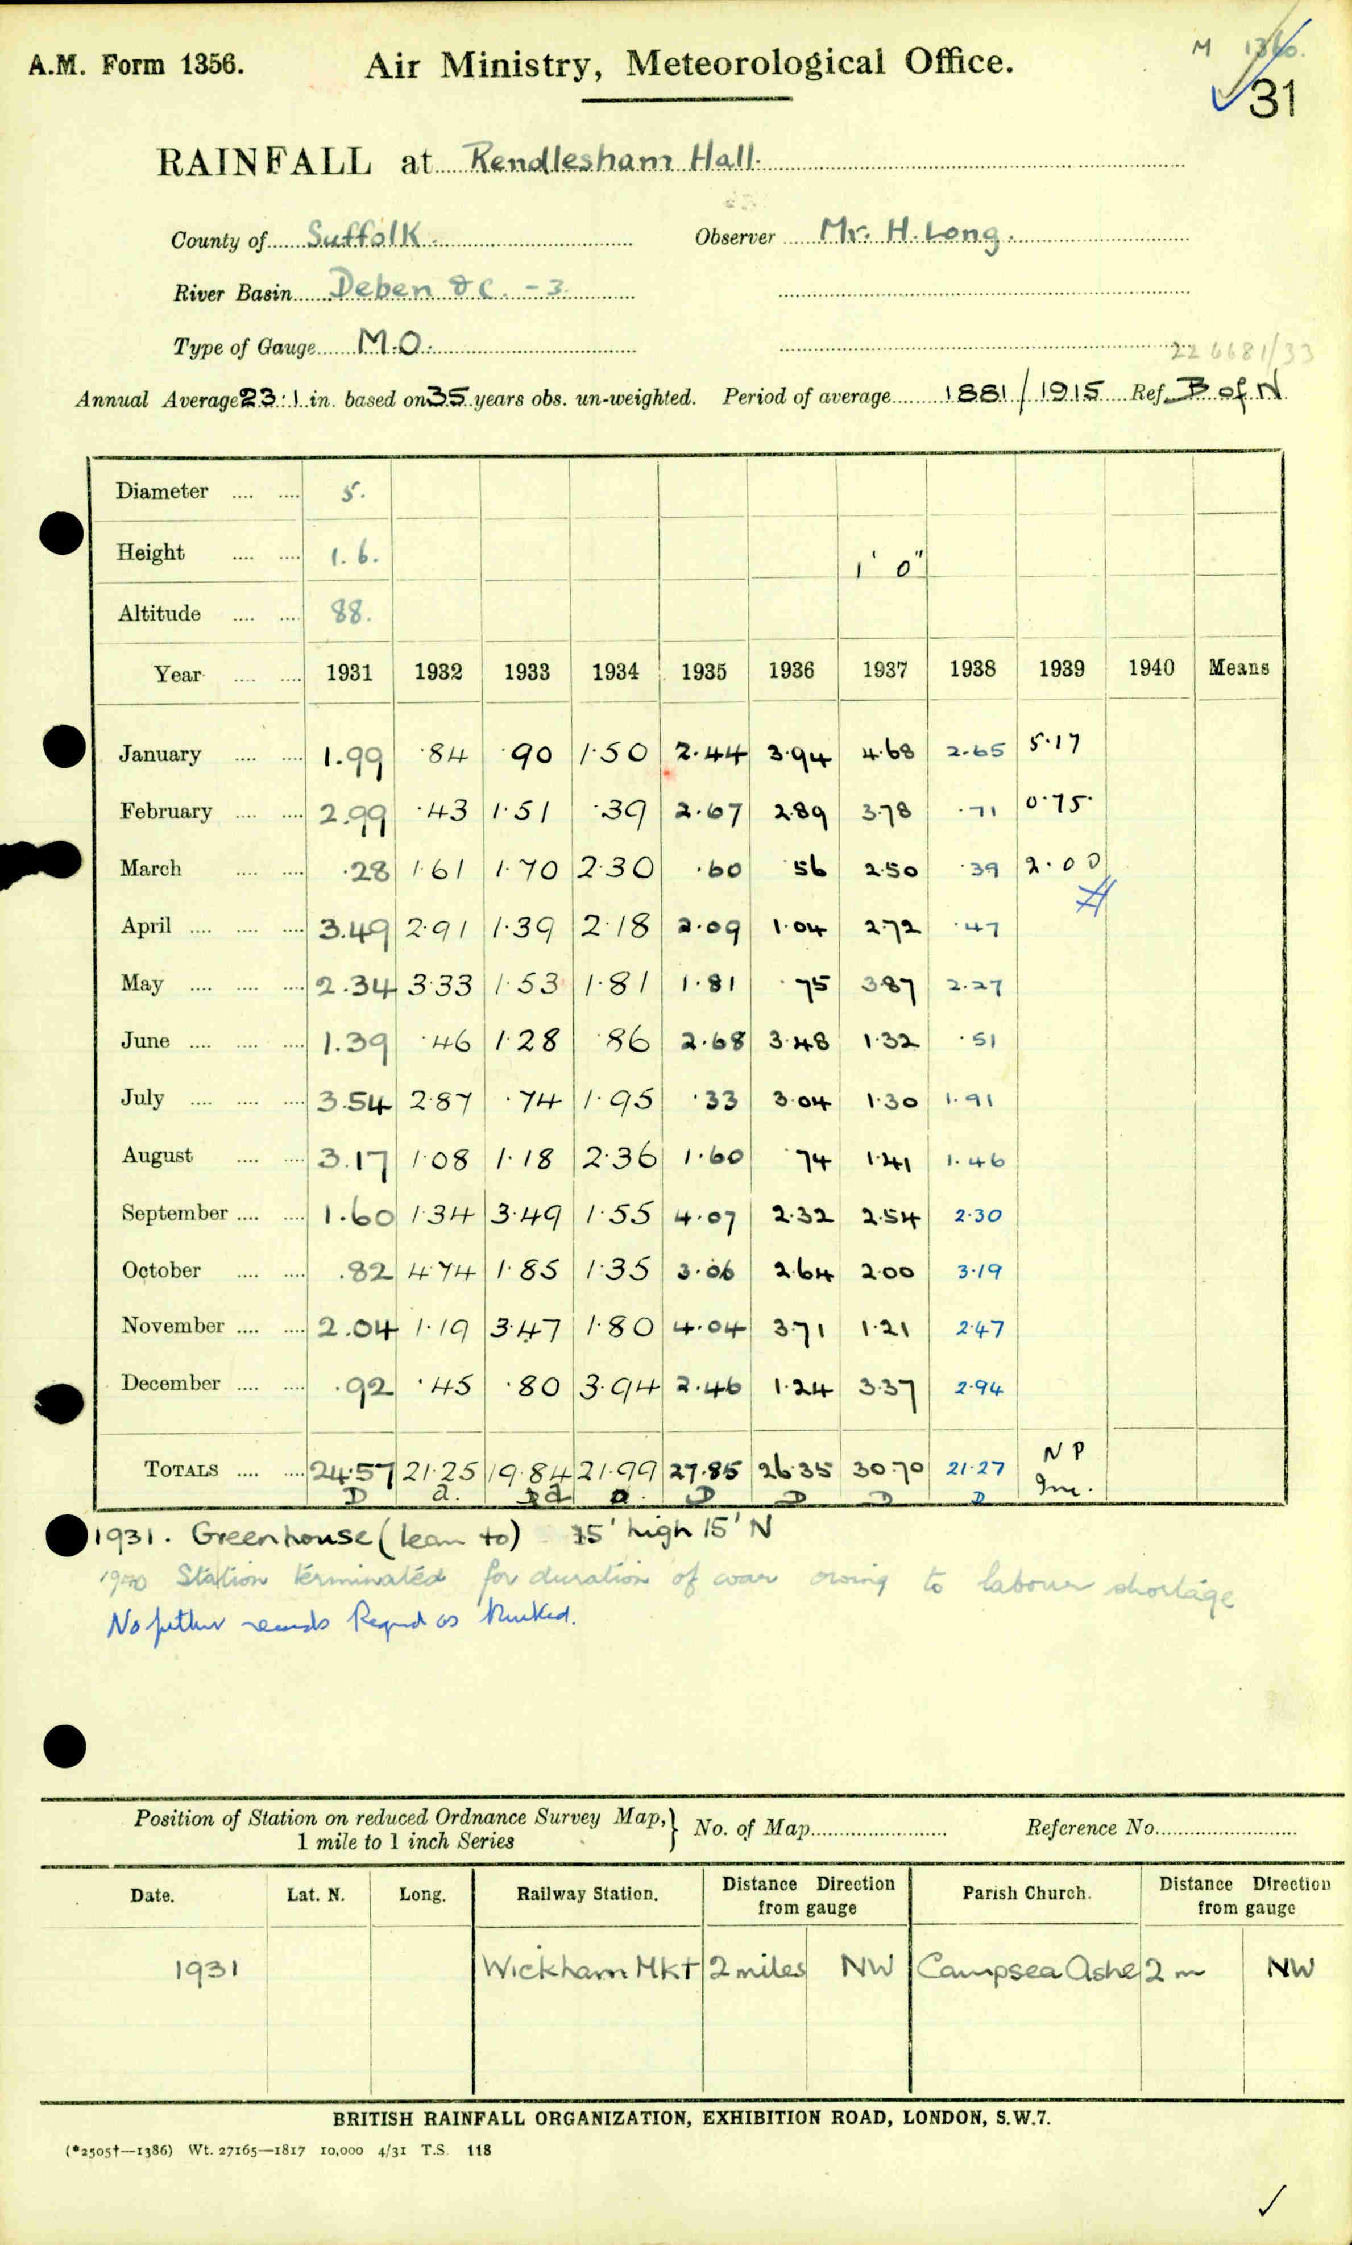 M 1360.
A.M. Form 1356. Air Ministry, Meteorological Office. 31
RAINFALL at Rendlesham Hall.
County of Suffolk. Observer Mr. H. Long.
River Basin Deben &c. - 3
Type of Gauge M.O.
22 6681/33
Annual Average 23.1 in. based on 35 years obs. un-weighted. Period of average 1881/1915 Ref. B of N
Diameter .... .... 5.
Height .... .... 1.6. 1' 0"
Altitude .... .... 88.
Year .... .... 1931 1932 1933 1934 1935 1936 1937 1938 1939 1940 Means
January .... .... 1.99 .84 .90 1.50 2.44 3.94 4.68 2.65 5.17
February .... .... 2.99 .43 1.51 .39 2.67 2.89 3.78 .71 0.75
March .... .... .28 1.61 1.70 2.30 .60 .56 2.50 .39 2.00
April .... .... .... 3.49 2.91 1.39 2.18 2.09 1.04 2.72 .47
May .... .... .... 2.34 3.33 1.53 1.81 1.81 .75 3.87 2.27
June .... .... .... 1.39 .46 1.28 .86 2.68 3.48 1.32 .51
July .... .... .... 3.54 2.87 .74 1.95 .33 3.04 1.30 1.91
August .... .... 3.17 1.08 1.18 2.36 1.60 .74 1.41 1.46
September .... .... 1.60 1.34 3.49 1.55 4.07 2.32 2.54 2.30
October .... .... .82 4.74 1.85 1.35 3.06 2.64 2.00 3.19
November .... .... 2.04 1.19 3.47 1.80 4.04 3.71 1.21 2.47
December .... .... .92 .45 .80 3.94 2.46 1.24 3.37 2.94
TOTALS .... .... 24.57 21.25 19.84 21.99 27.85 26.35 30.70 21.27 N P
D a. a D D D D Inc.
1931. Greenhouse (lean to) 15' high 15' N
1940 Station terminated for duration of war owing to labour shortage
No further records Regard as
Position of Station on reduced Ordnance Survey Map, } No. of Map Reference No.
1 mile to 1 inch Series
Date. Lat. N. Long. Railway Station. Distance Direction from gauge Parish Church. Distance Direction from gauge
1931 Wickham Mkt 2 miles NW Campsea Ashe 2 m NW
BRITISH RAINFALL ORGANIZATION, EXHIBITION ROAD, LONDON, S.W.7.
(*2505†—1386) Wt. 27165—1817 10,000 4/31 T.S. 118